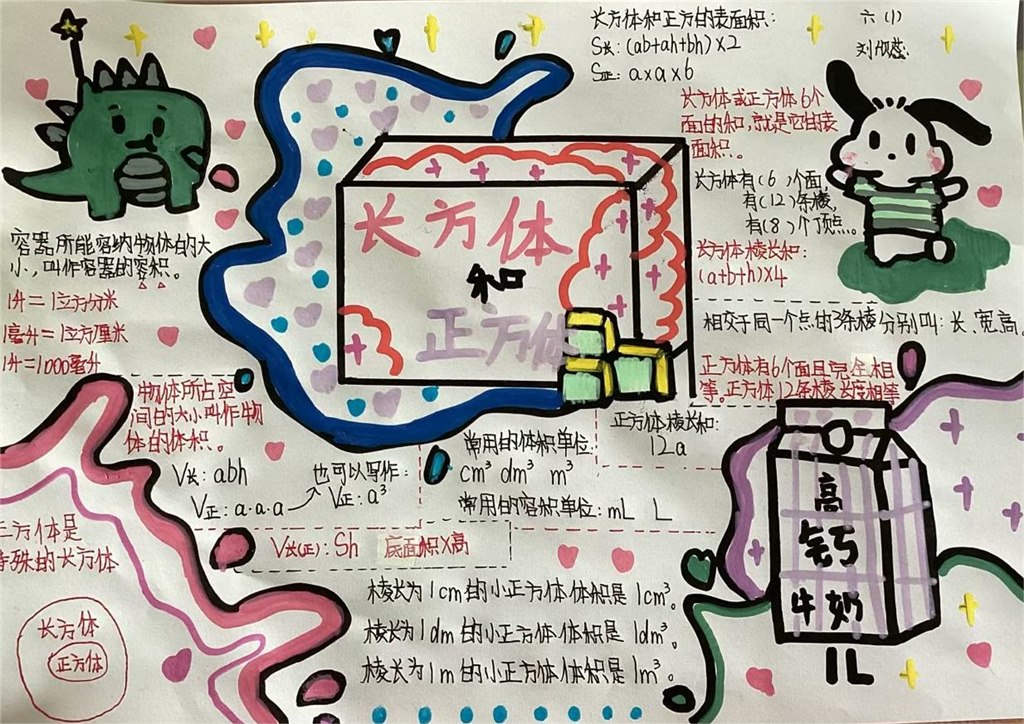 长方体和正方的表面积:
S长:(ab+ah+bh)×2
S正: a×a×6
六(1)
长方体或正方体6个
面的和,就是它的表
面积。
长方体有(6)个面,
有(12)条棱,
有(8)个顶点。
长方体棱长和:
(a+b+h)×4
相交于同一个点的3条棱分别叫:长、宽、高
正方体有6个面且完全相
等。正方体12条棱长度相等
正方体棱长和:
12a
长方体
和
正方体
容器所能容纳物体的大
小,叫作容器的容积。
1升=1立方分米
1毫升=1立方厘米
1升=1000毫升
物体所占空
间的大小叫作物
体的体积。
V长: abh
V正: a·a·a
也可以写作:
V正: a³
常用的体积单位:
cm³ dm³ m³
常用的容积单位: mL L
V长(正): Sh 底面积×高
正方体是
特殊的长方体
长方体
正方体
棱长为1cm的小正方体体积是1cm³。
棱长为1dm的小正方体体积是1dm³。
棱长为1m的小正方体体积是1m³。
高
钙
牛奶
1L